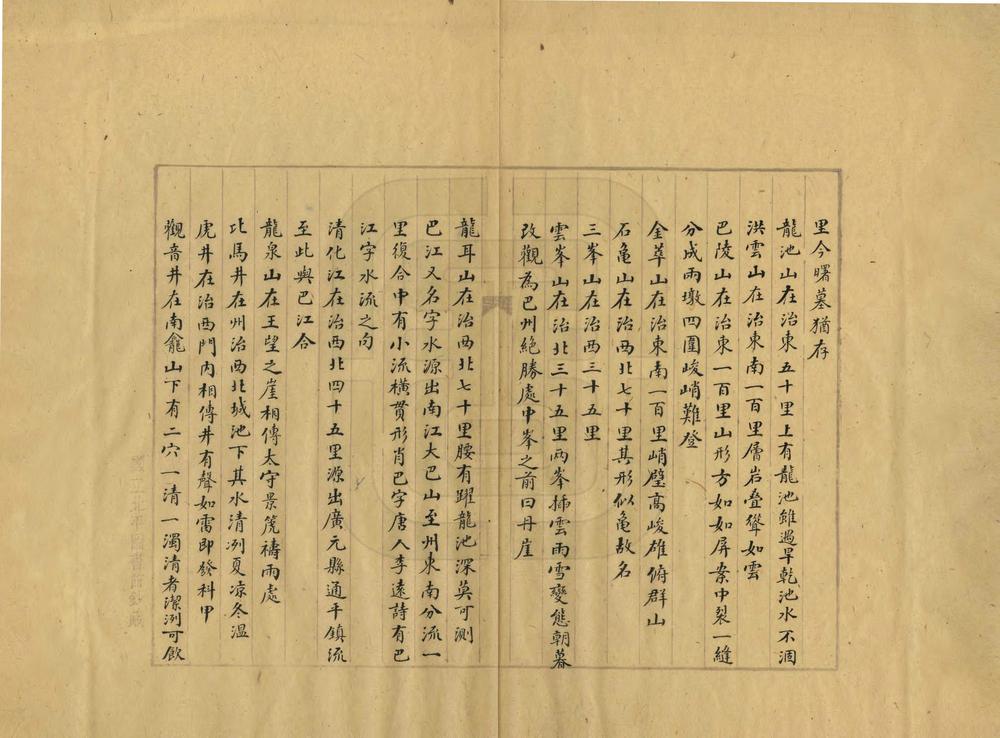 里今曙墓猶存
龍池山在治東五十里上有龍池雖過旱乾池水不涸
洪雲山在治東南一百里層岩叠聳如雲
巴陵山在治東一百里山形方如如屏案中裂一縫
分成兩墩四圍峻峭難登
金萃山在治東南一百里峭壁高峻雄俯群山
石亀山在治西北七十里其形似亀故名
三峯山在治西三十五里
雲峯山在治北三十五里两峯揷雲雨雪變態朝暮
改觀為巴州絶勝處中峯之前曰丹崖
龍耳山在治西北七十里腰有躍龍池深莫可測
巴江又名字水源出南江大巴山至州東南分流一
里復合中有小流橫貫形肖巴字唐人李遠詩有巴
江字水流之句
清化江在治西北四十五里源出廣元縣通平鎮流
至此與巴江合
龍泉山在王望之崖相傳太守景箎禱雨處
北馬井在州治西北城池下其水清冽夏凉冬温
虎井在治西門內相傳井有聲如雷即發科甲
觀音井在南龕山下有二穴一清一濁清者潔冽可飲